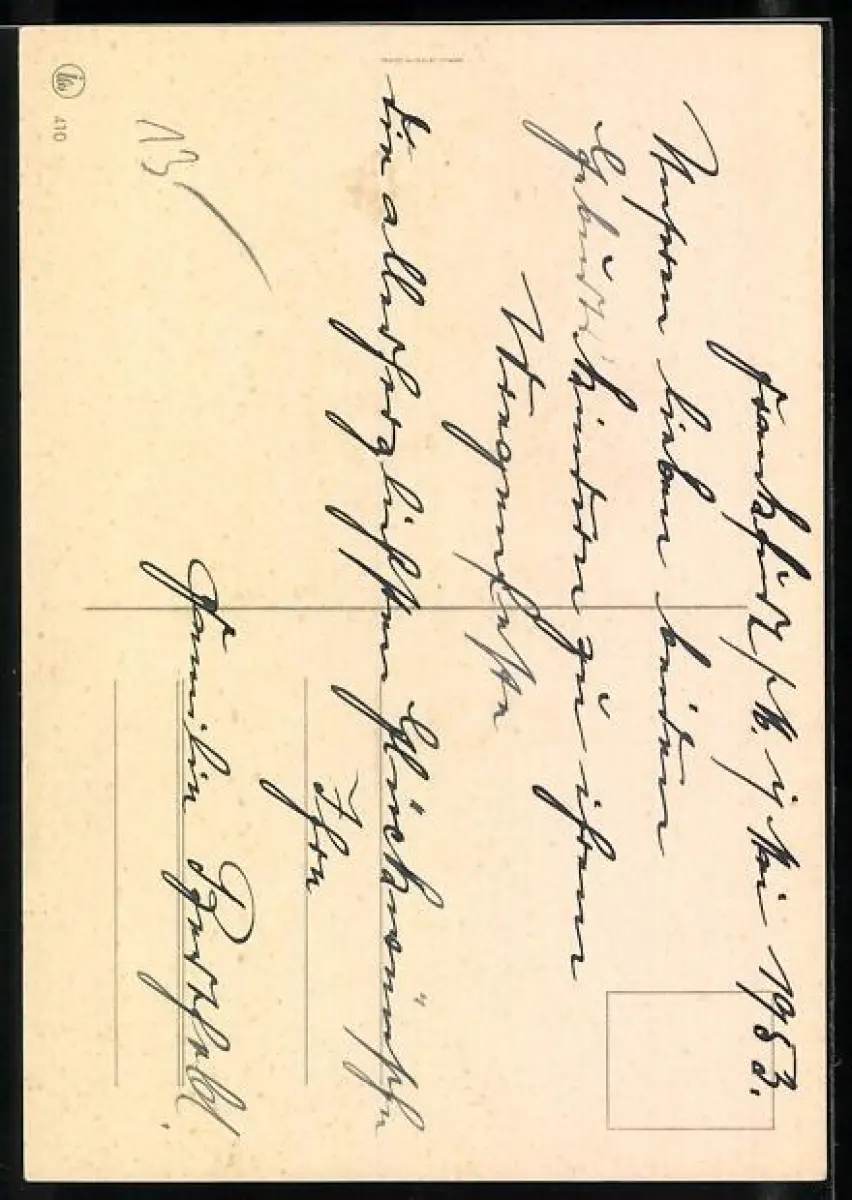 Frankfurt/M. j. Mai 1953.
Unseren lieben
Geburtskindern zu ihrem
Wiegenfeste
die allerherzlichsten Glückwünsche
Ihre
Familie
13
410